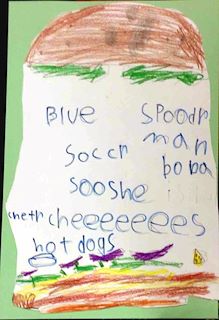 Blue
Spoodr
man
Soccr
boba
sooshe
cheeeeeeees
hot dogs